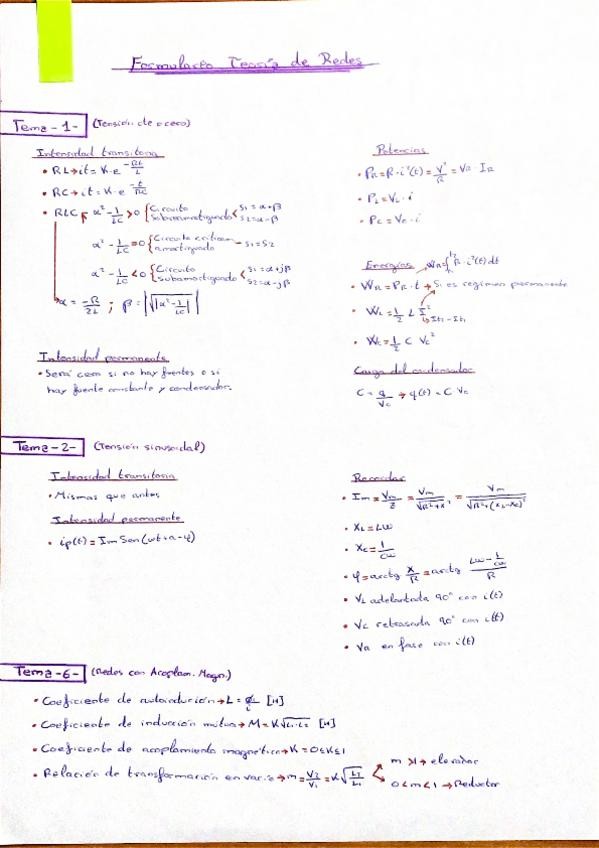 Formulario Teoría de Redes
Tema-1- (Tensión de acero)
Intensidad transitoria
• RL→it=K·e^(-Rt/L)
• RC→it=K·e^(-t/RC)
• RLC α²-1/LC>0 {Circuito sobreamortiguado< S1=α+β S2=α-β
α²-1/LC=0 {Circuito críticam. amortiguado -S1=S2
α²-1/LC<0 {Circuito subamortiguado< S1=α+jβ S2=α-jβ
α=-R/2L ; β=|√|α²-1/LC||
Intensidad permanente
• Será cero si no hay fuentes o si
hay fuente constante y condensador.
Potencias
• PR=R·i²(t)=V²/R=VR·IR
• PL=VL·i
• PC=VC·i
Energías WR=∫R·i²(t)dt
• WR=PR·t→Si es regimen permanente
• WL=1/2 L I²
• WC=1/2 C Vc²
Carga del condensador
C=q/Vc→q(t)=C Vc
Tema-2- (Tensión sinusoidal)
Intensidad transitoria
• Mismas que antes
Intensidad permanente
• ip(t)=Im Sen(wt+α-φ)
Recordar
• Im=Vm/Z=Vm/√R²+X²=Vm/√R²+(XL-XC)²
• XL=Lω
• XC=1/Cω
• φ=arctg X/R=arctg (Lω-1/Cω)/R
• VL adelantada 90° con i(t)
• VC retrasada 90° con i(t)
• VR en fase con i(t)
Tema-6- (Redes con Acoplam. Magn.)
• Coeficiente de autoindución→L=φ/i [H]
• Coeficiente de inducción mutua→M=K√L1·L2 [H]
• Coeficiente de acoplamiento magnético→K=0≤K≤1
• Relación de transformación en vacío→m=V2/V1=K√L2/L1
m>1→elevador
0<m<1→Reductor